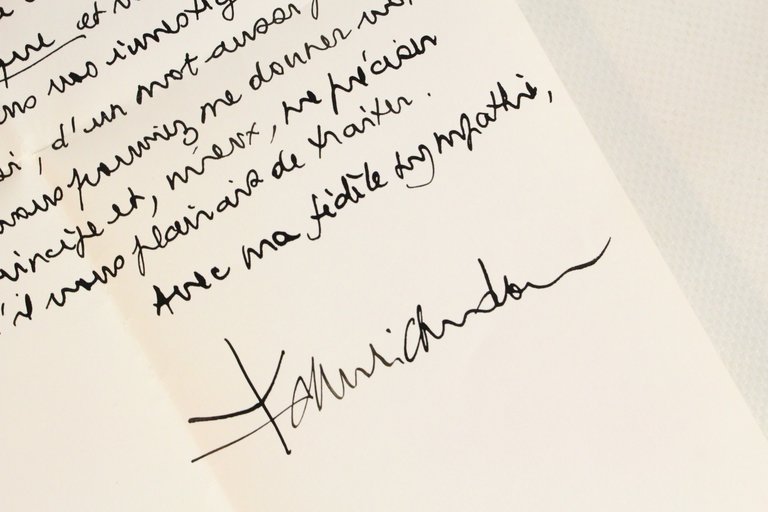 et
vos investig
, d'un mot aussi
vous pourriez me donner
principe et, mieux, me préciser
s'il vous plairait de traiter.
Avec ma fidèle sympathie,